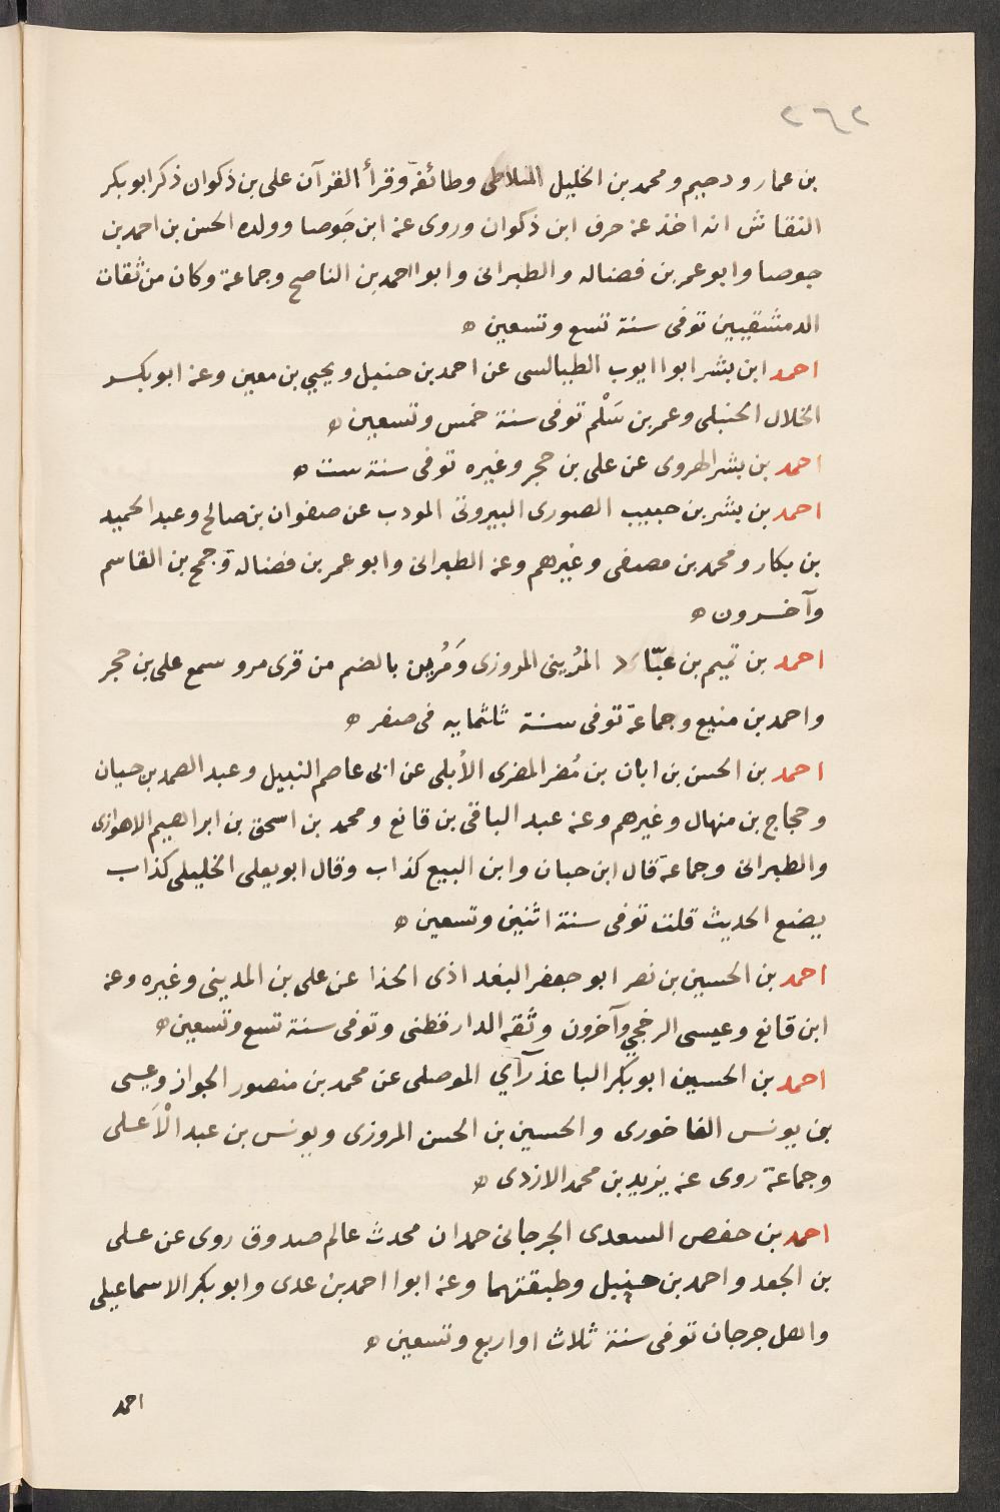 ٢٦٢
بن عمار ودحيم ومحمد بن الخليل البلاطى وطائفة وقرأ القرآن على بن ذكوان ذكر ابو بكر
النقاش انه اخذ عنه حرف ابن ذكوان وروى عنه ابن جَوصا وولده الحسن بن احمد بن
جوصا وابو عمر بن فضاله والطبرانى وابوا احمد بن الناصح وجماعة وكان من ثقات
الدمشقيين توفى سنة تسع وتسعين ه
احمد ابن بشر ابوا ايوب الطيالسى عن احمد بن حنبل ويحيي بن معين وعنه ابو بكر
الخلال الحنبلى وعمر بن سَلْم توفى سنة خمس وتسعين ه
احمد بن بشر الهروى عن على بن حجر وغيره توفى سنة ست ه
احمد بن بشر بن حبيب الصورى البيروتى المودب عن صفوان بن صالح وعبد الحميد
بن بكار ومحمد بن مصفى وغيرهم وعنه الطبرانى وابو عمر بن فضاله وَجمح بن القاسم
وآخرون ه
احمد بن تميم بن عبّاد المُرينى المروزى وَمُرين بالضم من قرى مرو سمع على بن حجر
واحمد بن منيع وجماعة توفى سنة ثلثمايه فى صفر ه
احمد بن الحسن بن ابان بن مُضر المضرى الأُبلى عن ابى عاصم النبيل وعبد الصمد بن حسان
وحجاج بن منهال وغيرهم وعنه عبد الباقى بن قانع ومحمد بن اسحق بن ابراهيم الاهوازى
والطبرانى وجماعة قال ابن حبان وابن البيع كذاب وقال ابو يعلى الخليلى كذاب
يضع الحديث قلت توفى سنة اثنين وتسعين ه
احمد بن الحسين بن نصر ابو جعفر البغداذى الحذا عن على بن المدينى وغيره وعنه
ابن قانع وعيسى الرخجي وآخرون وثقه الدارقطنى وتوفى سنة تسع وتسعين ه
احمد بن الحسين ابو بكر الباعذرآي الموصلى عن محمد بن منصور الجواز وعيسى
بن يونس الفاخورى والحسين بن الحسن المروزى ويونس بن عبد الْاَعلى
وجماعة روى عنه يزيد بن محمد الازدى ه
احمد بن حفص السعدى الجرجانى حمدان محدث عالم صدوق روى عن على
بن الجعد واحمد بن حنبل وطبقتهما وعنه ابوا احمد بن عدى وابو بكر الاسماعيلى
واهل جرجان توفى سنة ثلاث او اربع وتسعين ه
احمد